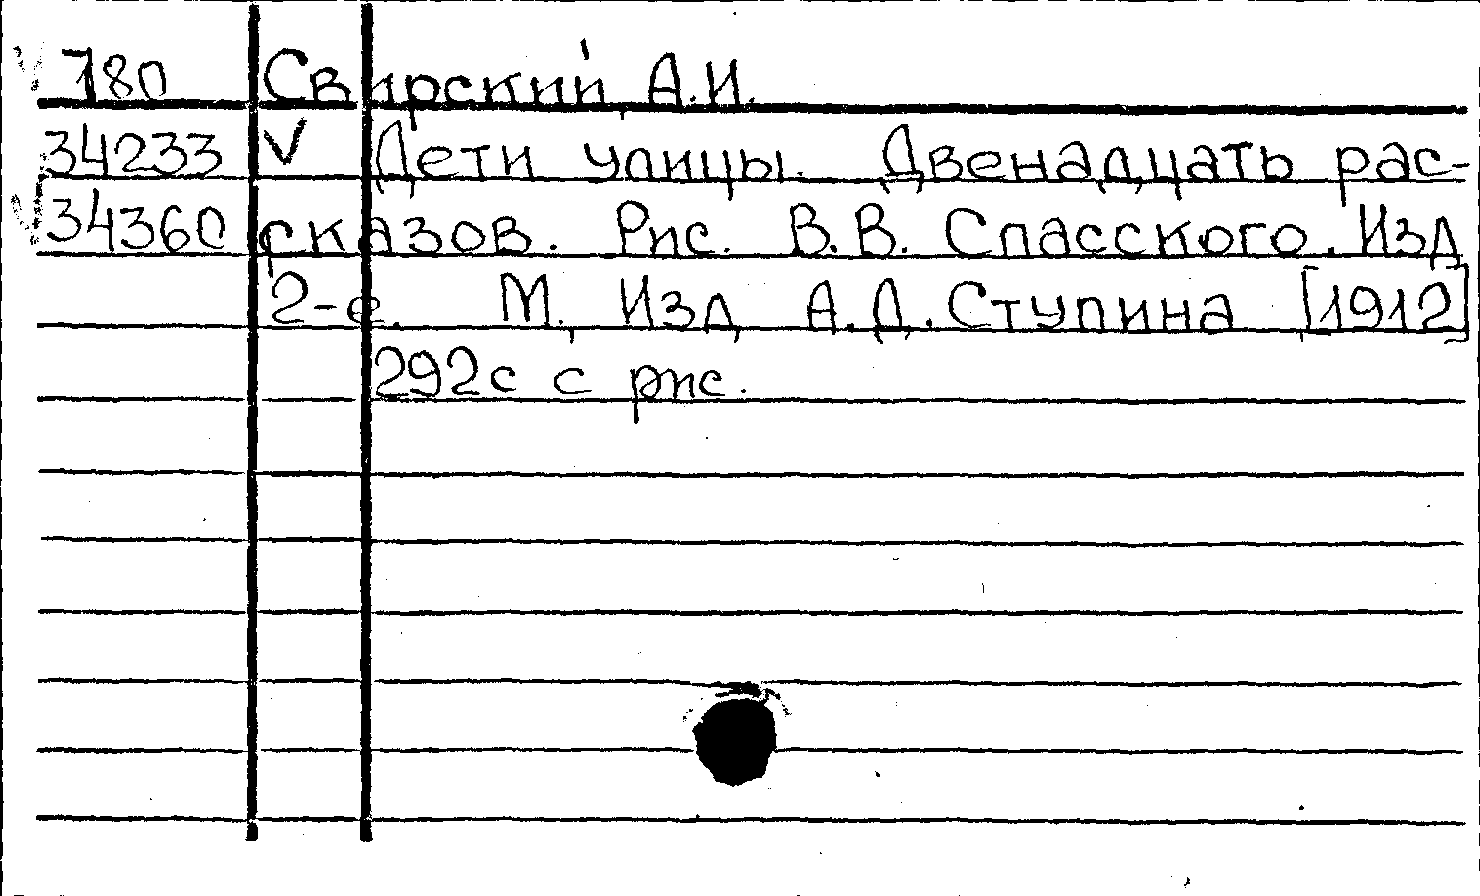 V 780 Свирский, А.И.
34233 V Дети улицы. Двенадцать рас-
V 34360 сказов. Рис. В.В. Спасского. Изд
2-е. М., Изд. А.Д. Ступина [1912]
292с с рис.